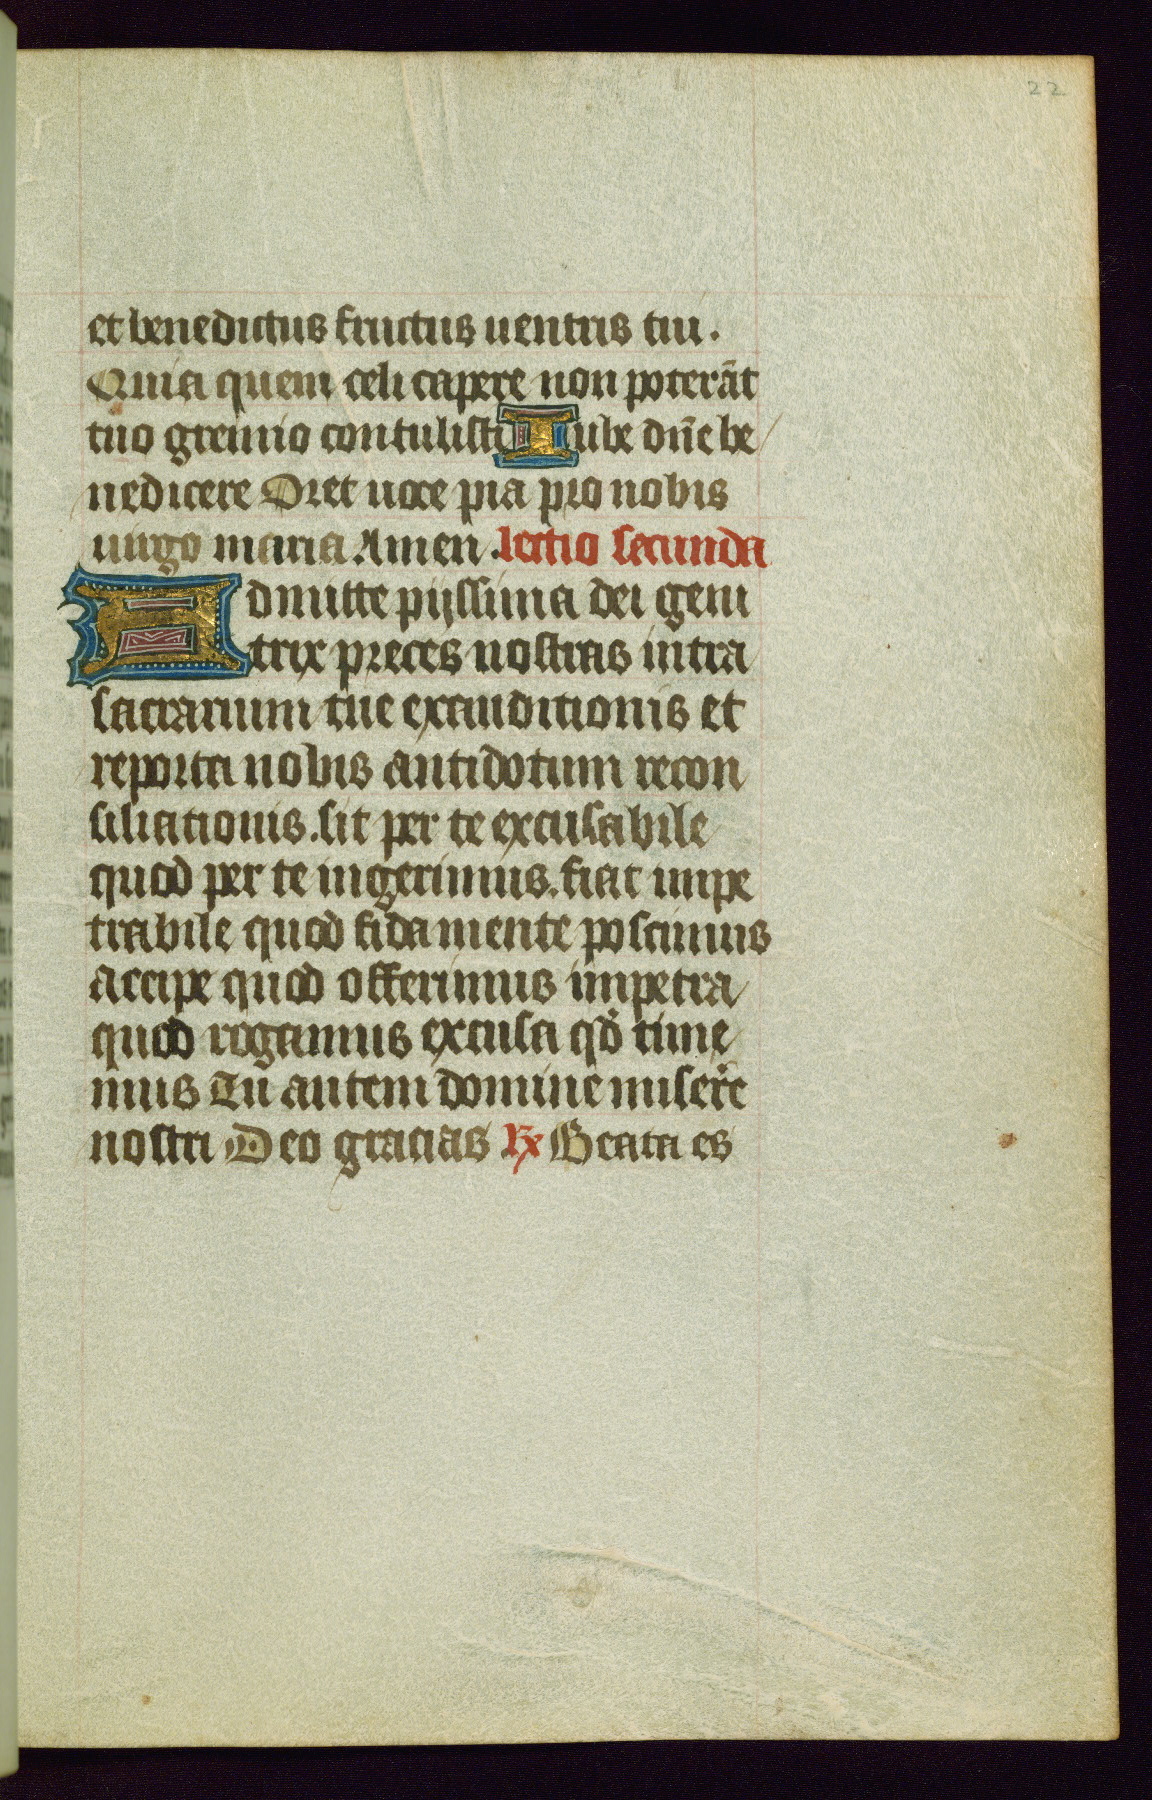 22
et benedictus fructus uentris tui.
Quia quem celi capere non poterāt
tuo gremio contulisti Iube dn̄e be
nedicere Oret uoce pia pro nobis
uirgo maria Amen. lectio secunda
Admitte pijssima dei geni
trix preces nostras intra
sacrarium tue exauditionis et
reporta nobis antidotum recon
siliationis. sit per te excusabile
quod per te ingerimus. fiat impe
trabile quod fida mente poscimus
accipe quod offerimus impetra
quod rogamus excusa qd̄ time
mus Tu autem domine miserēe
nostri Deo gracias ℟ Beata es